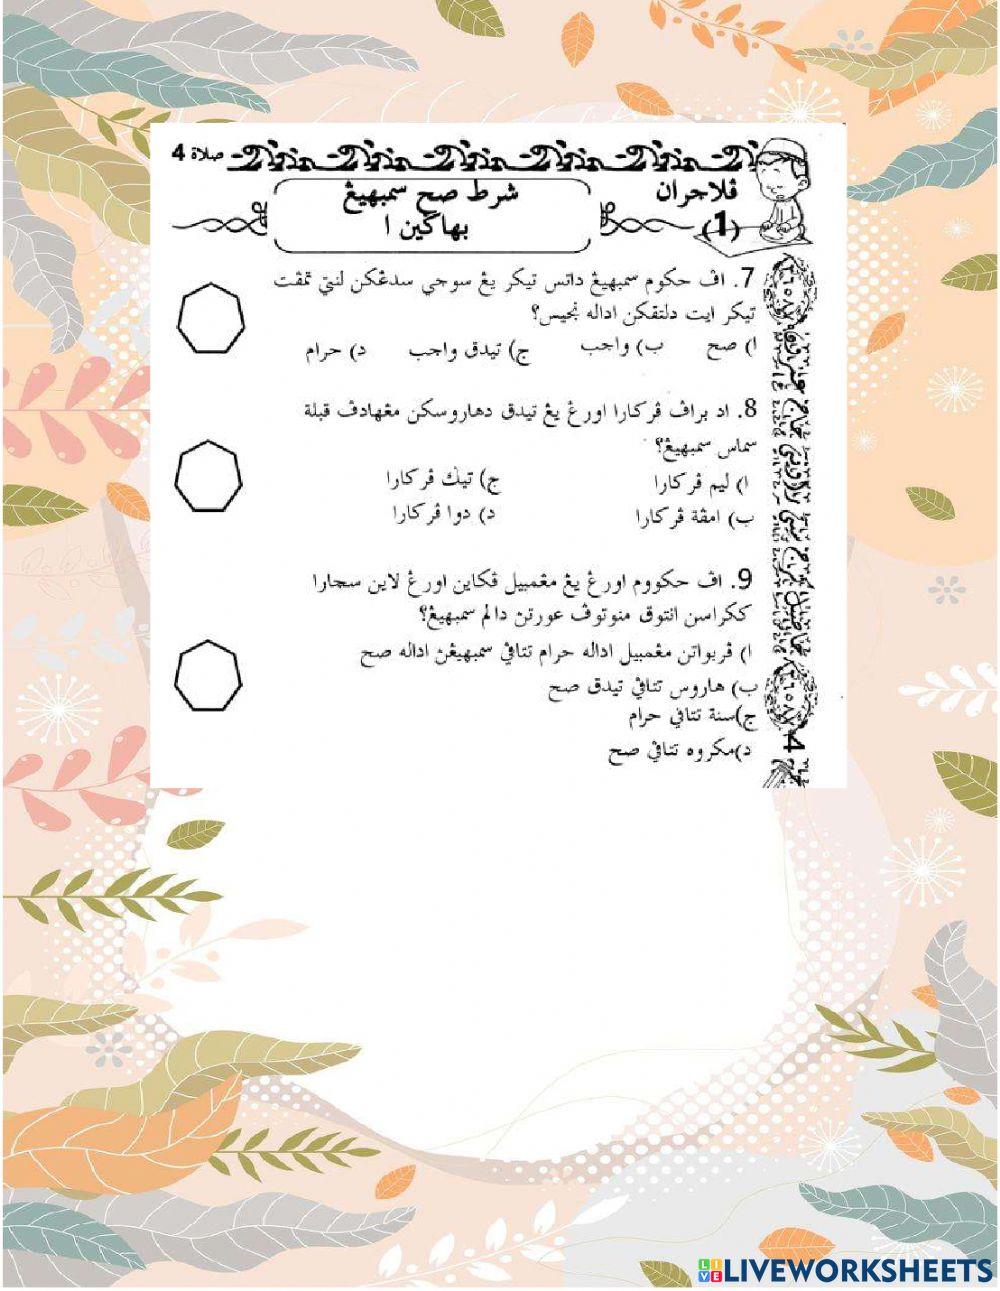 صلاة 4
ڤلاجران
(1)
شرط صح سمبهيڠ
بهاݢين ١
7. اڤ حكوم سمبهيڠ داتس تيكر يڠ سوچي سدڠكن لنتي تمڤت
تيكر ايت دلتقكن اداله نجيس؟
ا) صح ب) واجب ج) تيدق واجب د) حرام
8. اد براڤ ڤركارا اورڠ يڠ تيدق دهاروسكن مڠهادڤ قبلة
سماس سمبهيڠ؟
ا) ليم ڤركارا ج) تيݢ ڤركارا
ب) امڤة ڤركارا د) دوا ڤركارا
9. اڤ حكووم اورڠ يڠ مڠمبيل ڤكاين اورڠ لاين سچارا
ككراسن انتوق منوتوڤ عورتن دالم سمبهيڠ؟
ا) ڤربواتن مڠمبيل اداله حرام تتاڤي سمبهيڠن اداله صح
ب) هاروس تتاڤي تيدق صح
ج)سنة تتاڤي حرام
د)مكروه تتاڤي صح
LIVEWORKSHEETS